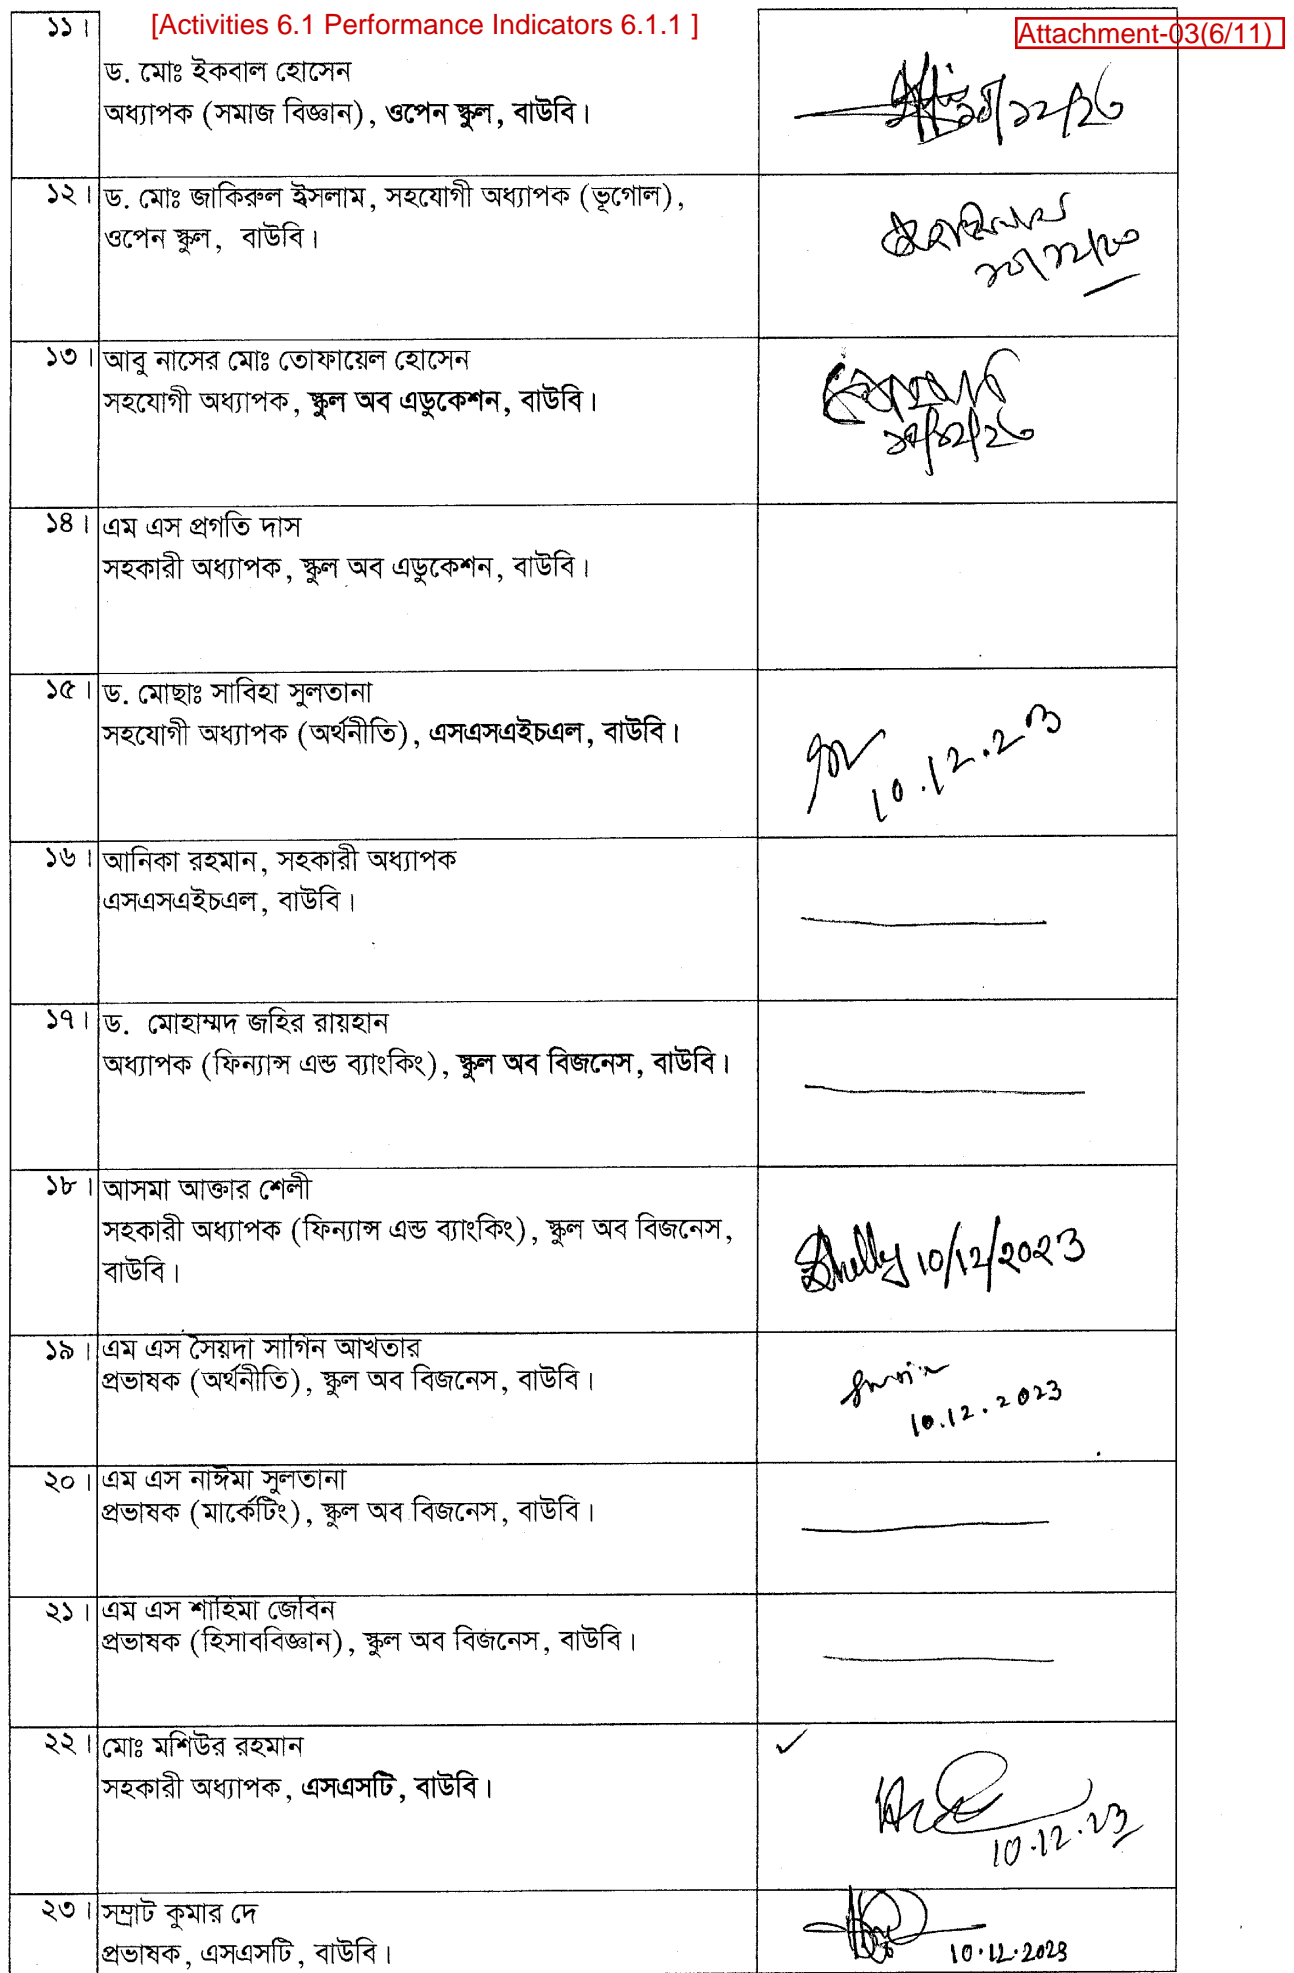 [Activities 6.1 Performance Indicators 6.1.1 ]
Attachment-03(6/11)
১১।
ড. মোঃ ইকবাল হোসেন
অধ্যাপক (সমাজ বিজ্ঞান), ওপেন স্কুল, বাউবি।
১২। ড. মোঃ জাকিরুল ইসলাম, সহযোগী অধ্যাপক (ভূগোল),
ওপেন স্কুল, বাউবি।
১৩। আবু নাসের মোঃ তোফায়েল হোসেন
সহযোগী অধ্যাপক, স্কুল অব এডুকেশন, বাউবি।
১৪। এম এস প্রগতি দাস
সহকারী অধ্যাপক, স্কুল অব এডুকেশন, বাউবি।
১৫। ড. মোছাঃ সাবিহা সুলতানা
সহযোগী অধ্যাপক (অর্থনীতি), এসএসএইচএল, বাউবি।
10.12.23
১৬। আনিকা রহমান, সহকারী অধ্যাপক
এসএসএইচএল, বাউবি।
১৭। ড. মোহাম্মদ জহির রায়হান
অধ্যাপক (ফিন্যান্স এন্ড ব্যাংকিং), স্কুল অব বিজনেস, বাউবি।
১৮। আসমা আক্তার শেলী
সহকারী অধ্যাপক (ফিন্যান্স এন্ড ব্যাংকিং), স্কুল অব বিজনেস,
বাউবি।
Shelly 10/12/2023
১৯। এম এস সৈয়দা সাগিন আখতার
প্রভাষক (অর্থনীতি), স্কুল অব বিজনেস, বাউবি।
10.12.2023
২০। এম এস নাঈমা সুলতানা
প্রভাষক (মার্কেটিং), স্কুল অব বিজনেস, বাউবি।
২১। এম এস শাহিমা জেবিন
প্রভাষক (হিসাববিজ্ঞান), স্কুল অব বিজনেস, বাউবি।
২২। মোঃ মশিউর রহমান
সহকারী অধ্যাপক, এসএসটি, বাউবি।
10.12.23
২৩। সম্রাট কুমার দে
প্রভাষক, এসএসটি, বাউবি।
10.12.2023